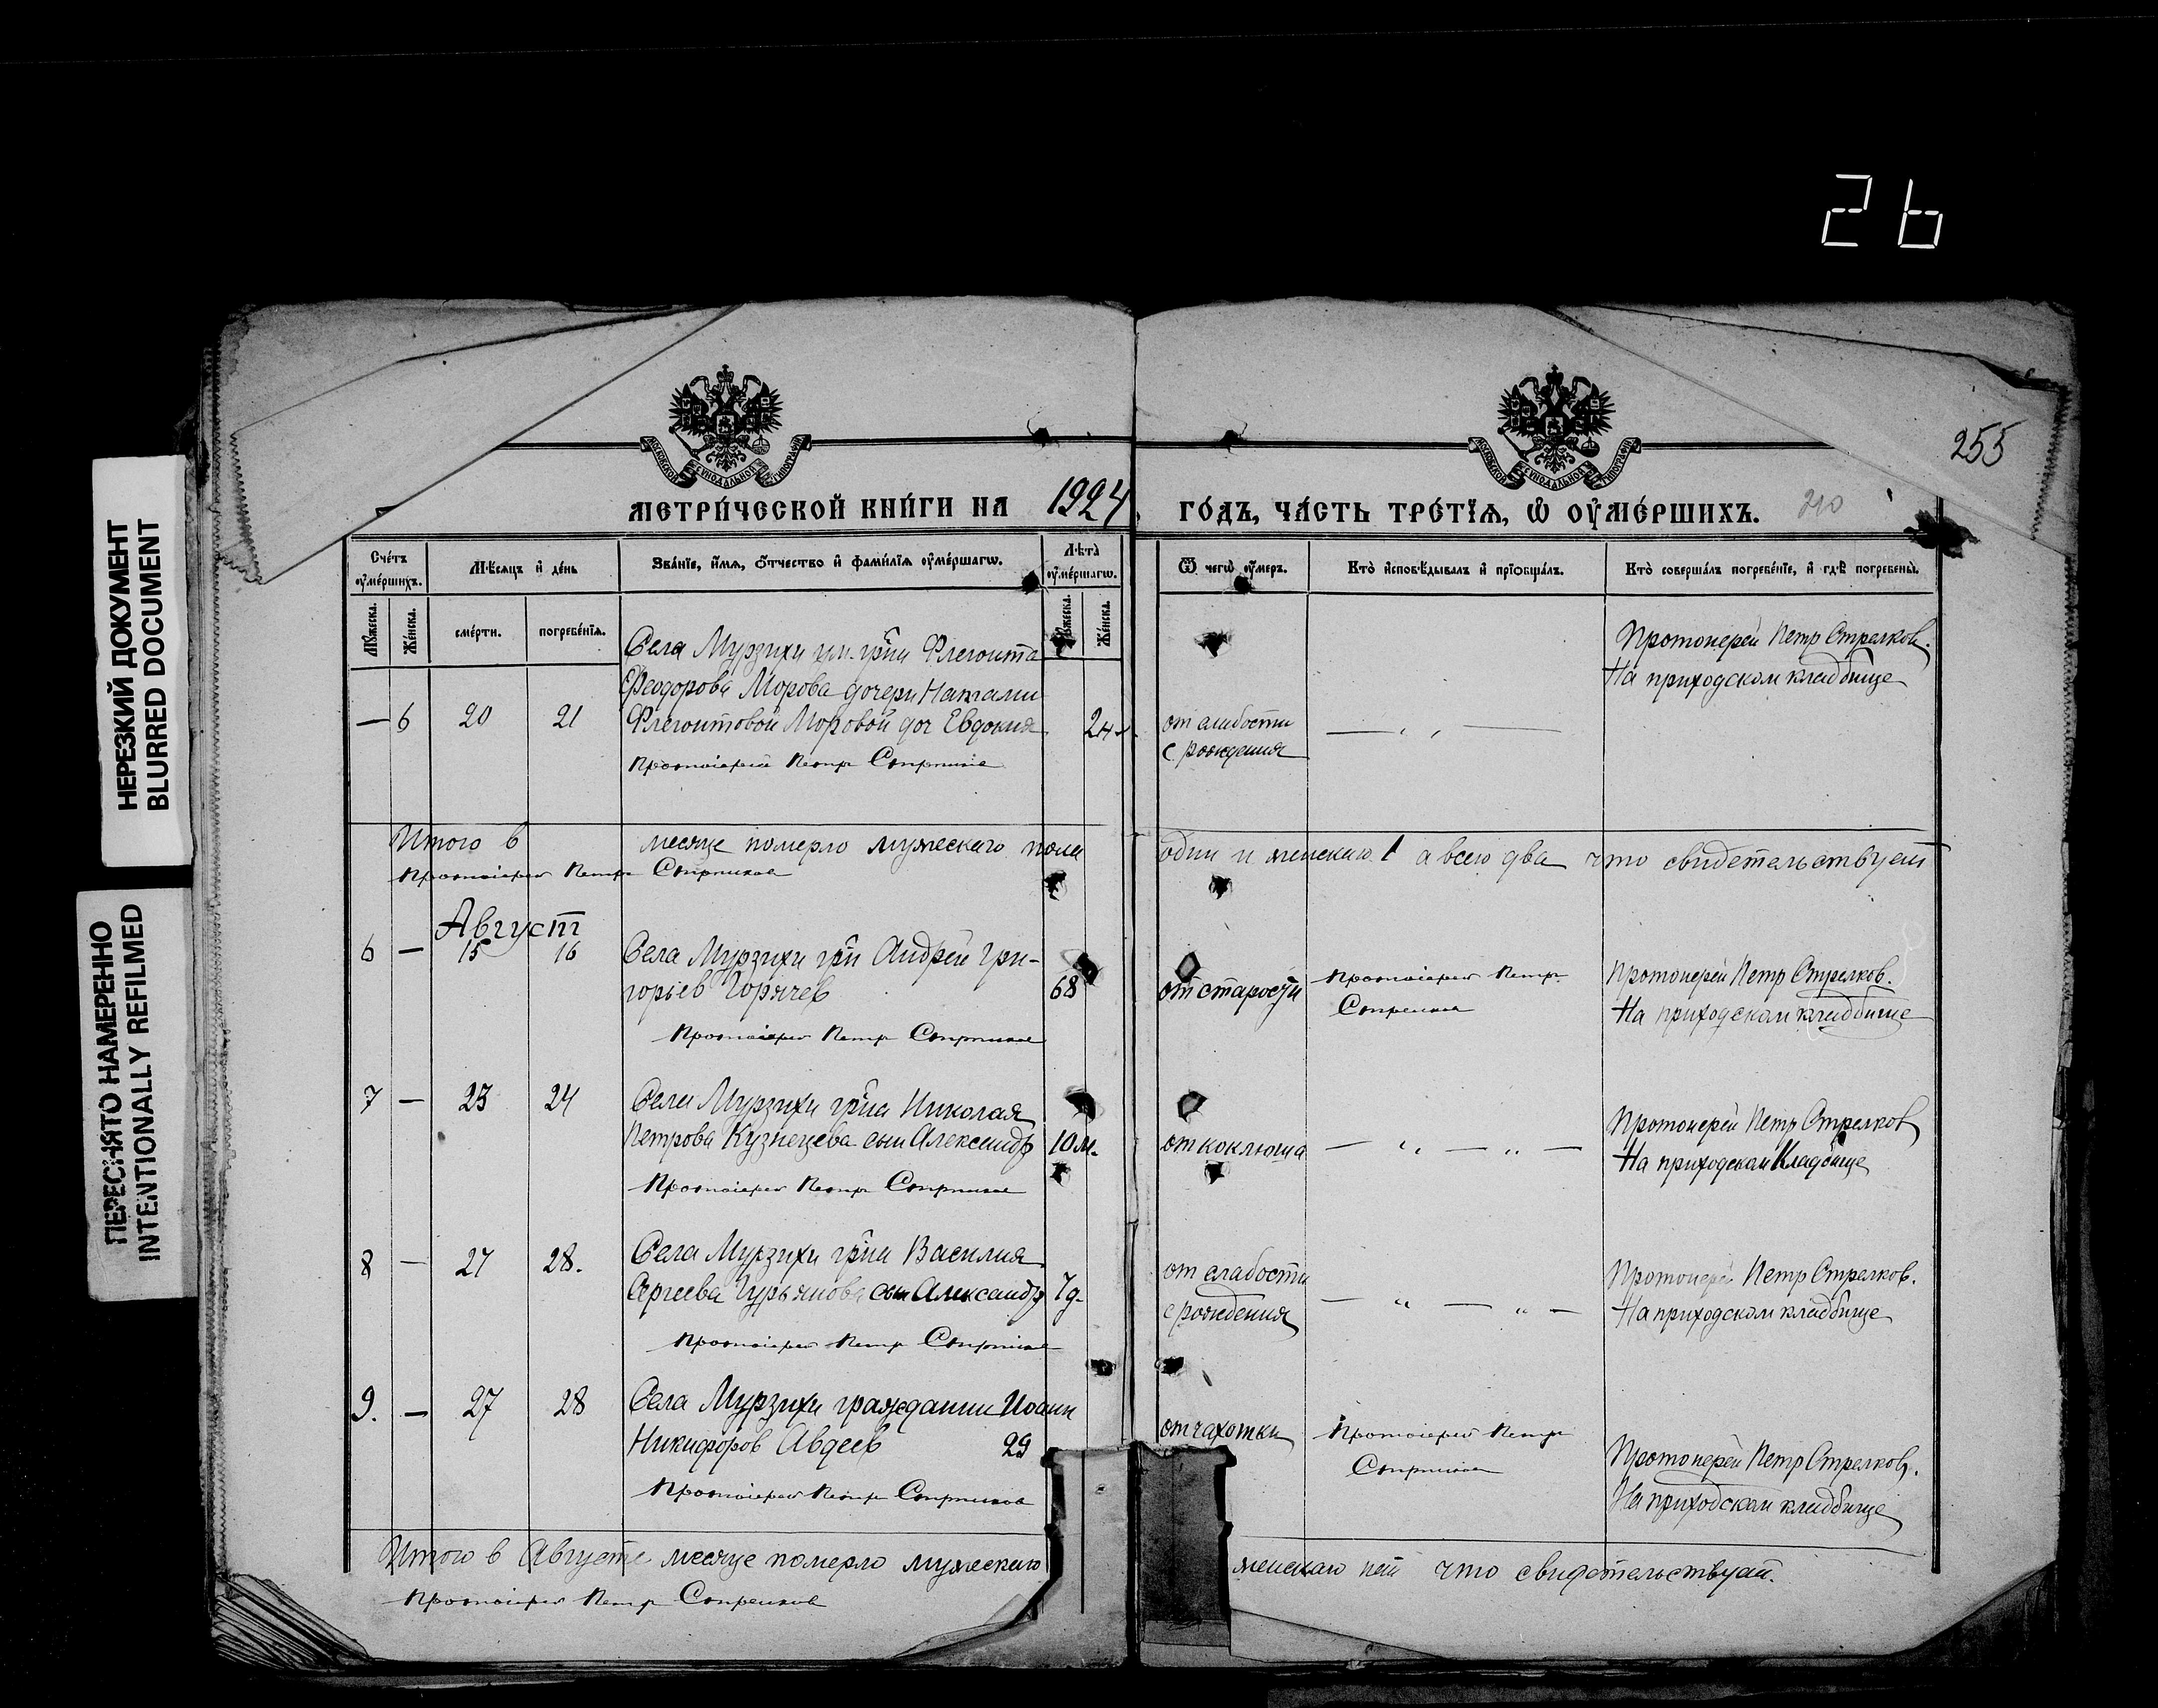 26
НЕРЕЗКИЙ ДОКУМЕНТ
BLURRED DOCUMENT
ПЕРЕСНЯТО НАМЕРЕННО
INTENTIONALLY REFILMED
255
МОСКОВСКОЙ СУНОДАЛЬНОЙ ТИПОГРАФІИ
МОСКОВСКОЙ СУНОДАЛЬНОЙ ТИПОГРАФІИ
МЕТРИ́ЧЕСКОЙ КНИ́ГИ НА 1924 ГО́ДЪ, ЧА́СТЬ ТРЕ́ТІѦ, Ѡ ОУ҆МЕ́РШИХЪ. 210
Сче́тъ оу҆ме́ршихъ.
Мѣ́сяцъ и҆ де́нь
Зва́нїе, и҆́мѧ, ѻ҆́тчество и҆ фами́лїѧ оу҆ме́ршагѡ.
Лѣта̀ оу҆ме́ршагѡ.
Ѿ чегѡ̀ оу҆́меръ.
Кто̀ и҆сповѣ́дывалъ и҆ прїѡбща́лъ.
Кто̀ соверша́лъ погребе́нїе, и҆ гдѣ̀ погребены̀.
Мꙋ́жеска.
Же́нска.
сме́рти.
погребе́нїѧ.
Мꙋ́жеска.
Же́нска.
Села Мурзихи гр-на Флегонта
Феодорова Морова дочери Натальи
— 6 20 21 Флегонтовой Моровой доч Евдокия 2н.
Протоіерей Петр Стрелков
от слабости
с рождения
— „ —
Протоиерей Петр Стрелков.
На приходском кладбище
Итого в месяце померло мужескаго пола один и женскаго 1 а всего два что свидетельствует
Протоіерей Петр Стрелков
Август
6 — 15 16 Села Мурзихи гр-н Андрей Гри-
горьев Горячев 68
Протоіерей Петр Стрелков
от старости
Протоіерей Петр
Стрелков
Протоиерей Петр Стрелков.
На приходском кладбище
7 — 23 24 Села Мурзихи гр-на Николая
Петрова Кузнецева сын Александр 10 м.
Протоіерей Петр Стрелков
от коклюша
— „ — „ —
Протоиерей Петр Стрелков
На приходском Кладбище
8 — 27 28. Села Мурзихи гр-на Василия
Сергеева Гурьянова сын Александр 7д.
Протоіерей Петр Стрелков
от слабости
с рождения
— „ — „ —
Протоиерей Петр Стрелков.
На приходском кладбище
9. — 27 28 Села Мурзихи гражданин Иоанн
Никифоров Авдеев 29
Протоіерей Петр Стрелков
от чахотки
Протоіерей Петр
Стрелков
Протоиерей Петр Стрелков.
На приходском кладбище
Итого в Августе месяце померло мужескаго женскаго нет что свидетельствует.
Протоіерей Петр Стрелков